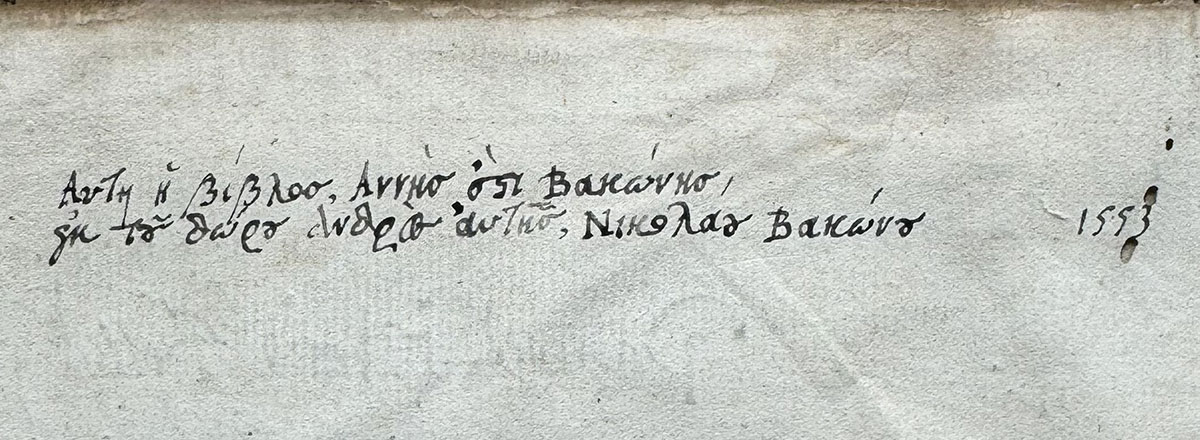 Αυτη ἡ βίβλος, Αννὴς ὀςὶ Βακώνης,
ἐκ τοῦ δώρου ἀνδρὸς ἀυτῆς, Νικολαου Βακώνου 1553